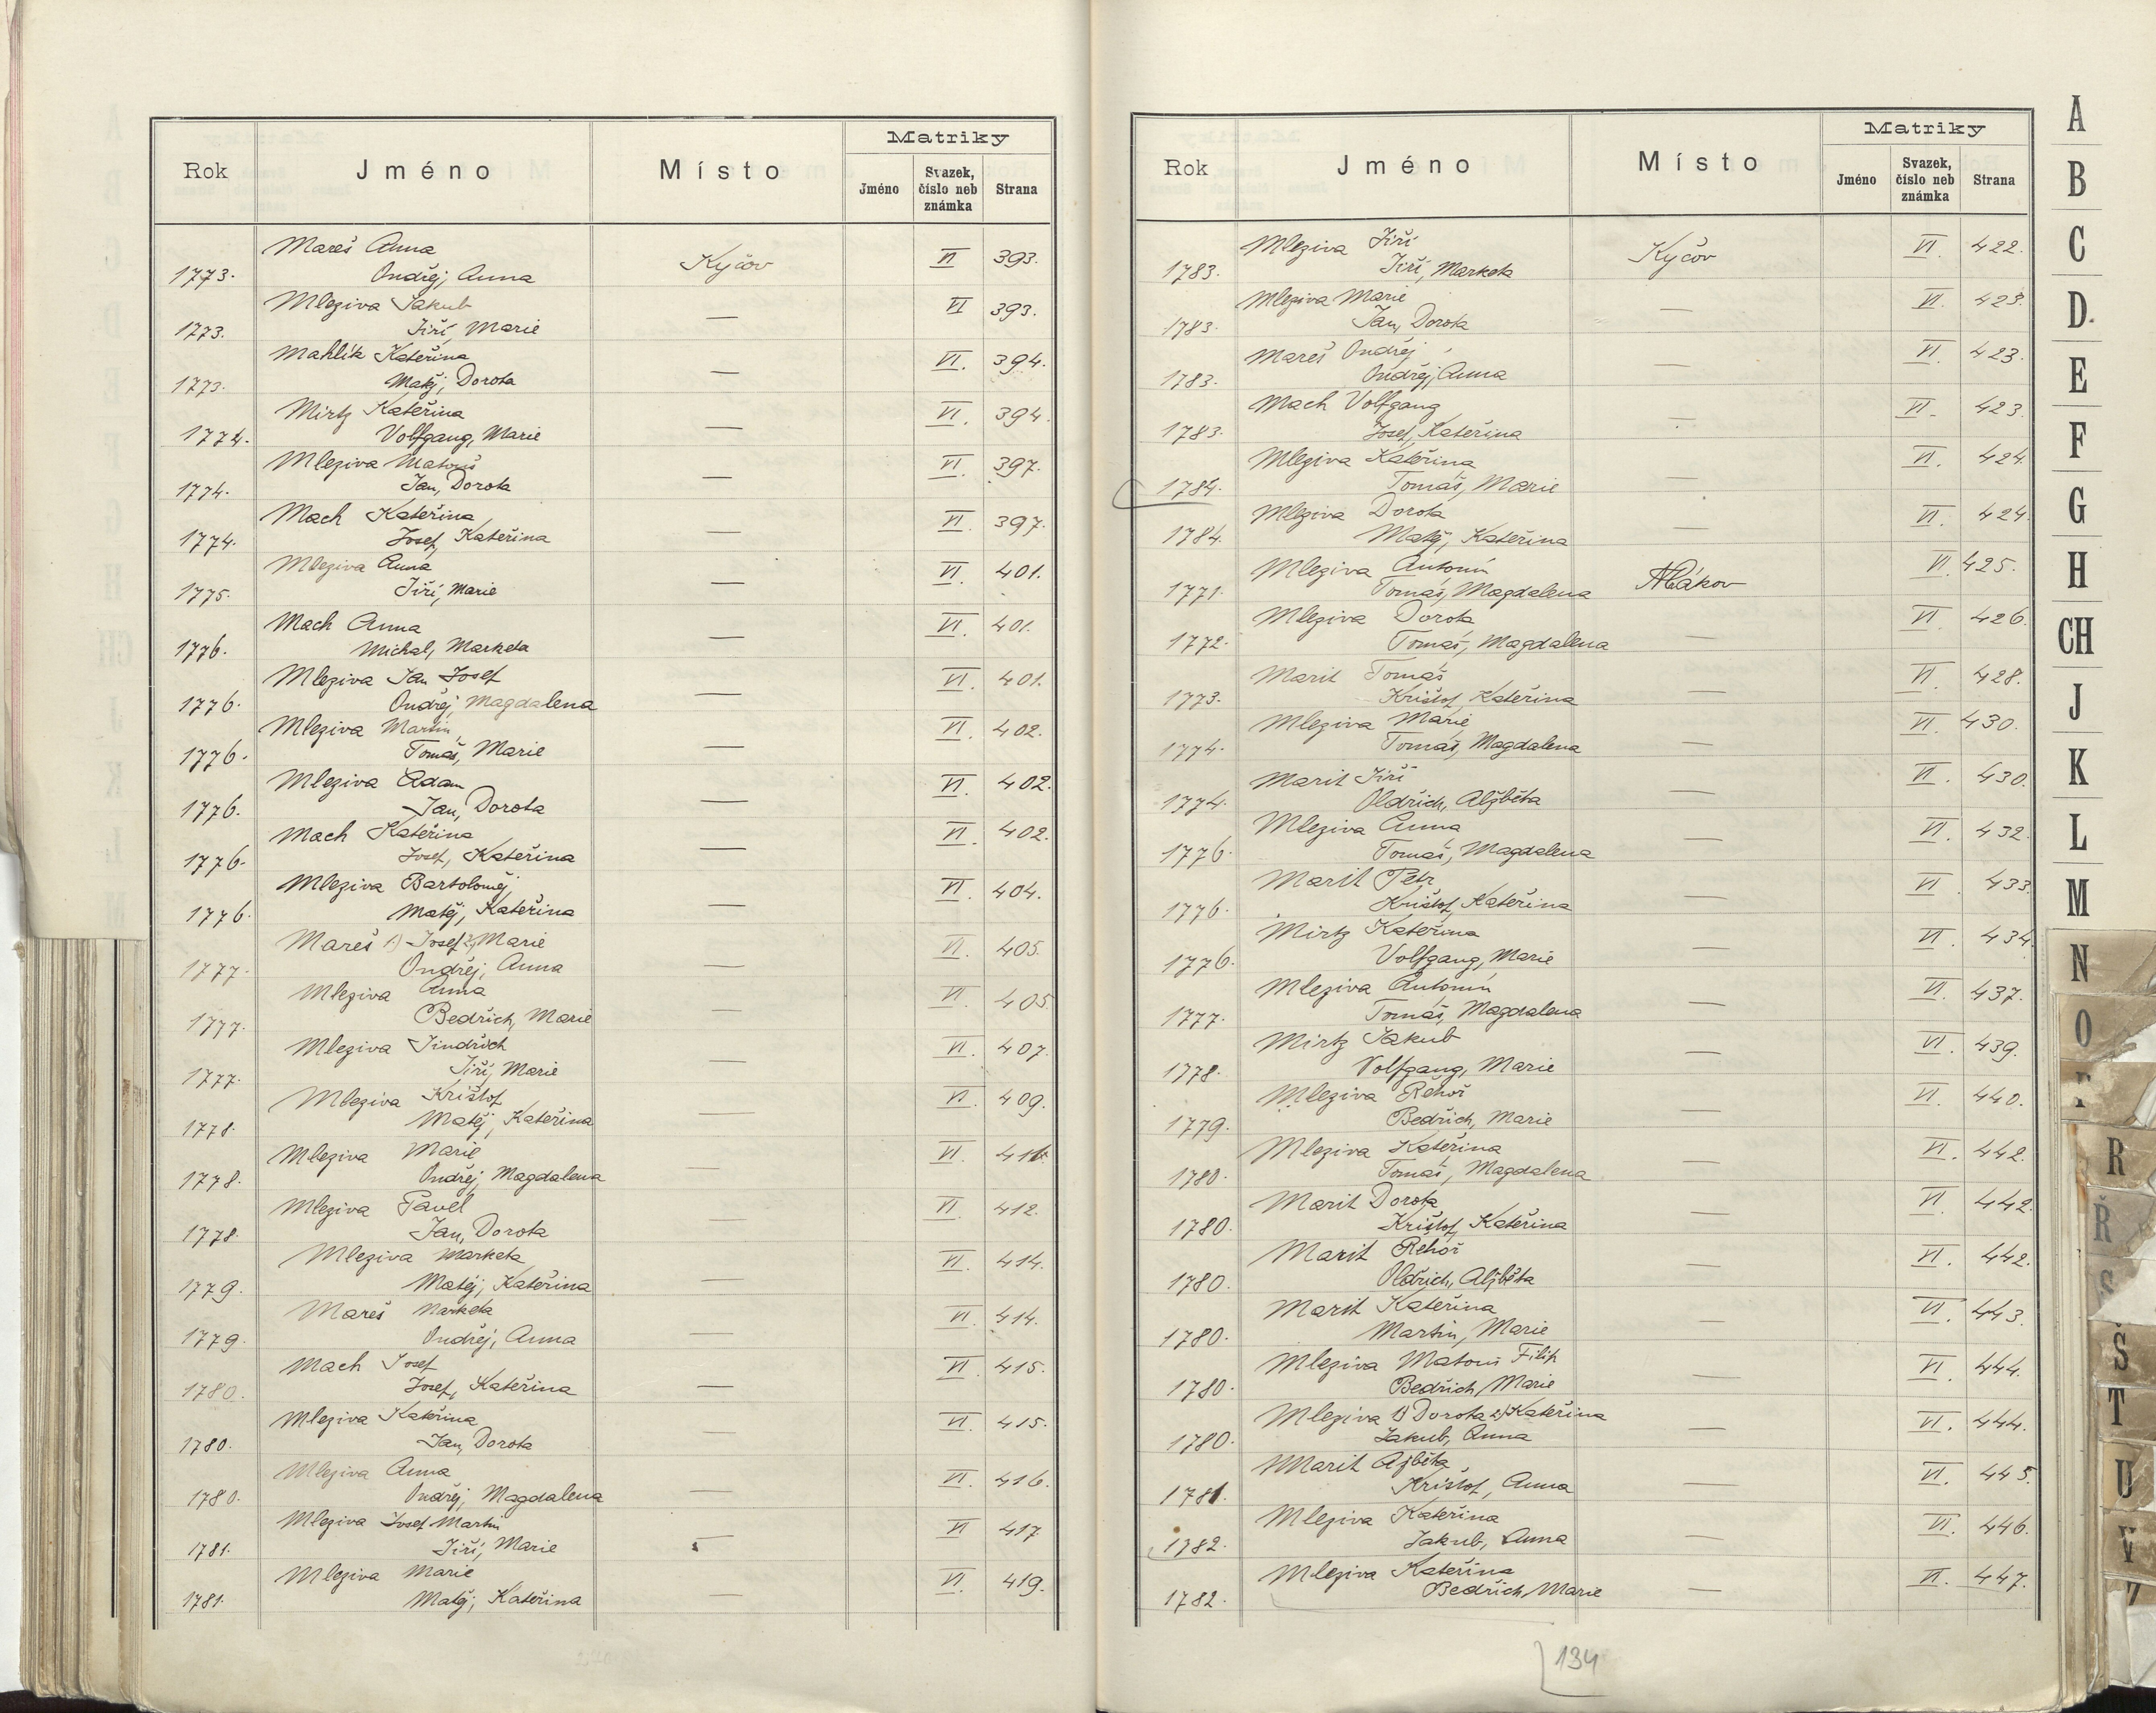 Rok Jméno Místo Matriky
Jméno Svazek, číslo neb známka Strana
Mareš Anna Kyčov VI 393.
1773. Ondřej, Anna
Mleziva Jakub — VI 393.
1773. Jiří, Marie
Mahlík Kateřina — VI. 394.
1773. Matěj, Dorota
Mirtz Kateřina — VI. 394.
1774. Volfgang, Marie
Mleziva Matouš — VI. 397.
1774. Jan, Dorota
Mach Kateřina — VI. 397.
1774. Josef, Kateřina
Mleziva Anna — VI. 401.
1775. Jiří, Marie
Mach Anna — VI. 401.
1776. Michal, Marketa
Mleziva Jan Josef — VI. 401.
1776. Ondřej, Magdalena
Mleziva Martin — VI. 402.
1776. Tomáš, Marie
Mleziva Adam — VI. 402.
1776. Jan, Dorota
Mach Kateřina — VI. 402.
1776. Josef, Kateřina
Mleziva Bartoloměj — VI. 404.
1776. Matěj, Kateřina
Mareš 1.) Josef 2.) Marie — VI. 405.
1777. Ondřej, Anna
Mleziva Anna — VI. 405
1777. Bedřich, Marie
Mleziva Jindřich — VI. 407.
1777. Jiří, Marie
Mleziva Krištof — VI. 409.
1778. Matěj, Kateřina
Mleziva Marie — VI.
1778. Ondřej, Magdalena
Mleziva Pavel — VI. 412.
1778. Jan, Dorota
Mleziva Marketa — VI. 414.
1779. Matěj, Kateřina
Mareš Marketa — VI. 414.
1779. Ondřej, Anna
Mach Josef — VI. 415.
1780. Josef, Kateřina
Mleziva Kateřina — VI. 415.
1780. Jan, Dorota
Mleziva Anna — VI. 416.
1780. Ondřej, Magdalena
Mleziva Josef Martin — VI 417
1781. Jiří, Marie
Mleziva Marie — VI. 419.
1781. Matěj, Kateřina
Rok Jméno Místo Matriky
Jméno Svazek, číslo neb známka Strana
Mleziva Jiří Kyčov VI. 422.
1783. Jiří, Marketa
Mleziva Marie — VI. 423.
1783. Jan, Dorota
Mareš Ondřej — VI. 423.
1783. Ondřej, Anna
Mach Volfgang — VI. 423.
1783. Josef, Kateřina
Mleziva Kateřina — VI. 424.
1784. Tomáš, Marie
Mleziva Dorota — VI. 424
1784. Matěj, Kateřina
Mleziva Antonín VI. 425.
1771. Tomáš, Magdalena
Mleziva Dorota — VI. 426.
1772. Tomáš, Magdalena
Marit Tomáš — VI. 428.
1773. Krištof, Kateřina
Mleziva Marie — VI. 430.
1774. Tomáš, Magdalena
Marit Jiří — VI. 430.
1774. Oldřich, Alžběta
Mleziva Anna — VI. 432.
1776. Tomáš, Magdalena
Marit Petr — VI. 433.
1776. Krištof, Kateřina
Mirtz Kateřina — VI. 434.
1776. Volfgang, Marie
Mleziva Antonín — VI. 437.
1777. Tomáš, Magdalena
Mirtz Jakub — VI. 439.
1778. Volfgang, Marie
Mleziva Řehoř — VI. 440.
1779. Bedřich, Marie
Mleziva Kateřina — VI. 442.
1780. Tomáš, Magdalena
Marit Dorota — VI. 442.
1780. Krištof, Kateřina
Marit Řehoř — VI. 442.
1780. Oldřich, Alžběta
Marit Kateřina — VI. 443.
1780. Martin, Marie
Mleziva Matouš Filip — VI. 444.
1780. Bedřich, Marie
Mleziva 1) Dorota 2) Kateřina — VI. 444.
1780. Jakub, Anna
Marit Ažběta — VI. 445.
1781. Krištof, Anna
Mleziva Kateřina — VI. 446.
1782. Jakub, Anna
Mleziva Kateřina — VI. 447.
1782. Bedřich, Marie
134
A
B
C
D.
E
F
G
H
CH
J
K
L
M
N
O
R
Ř
S
Š
T
U
V